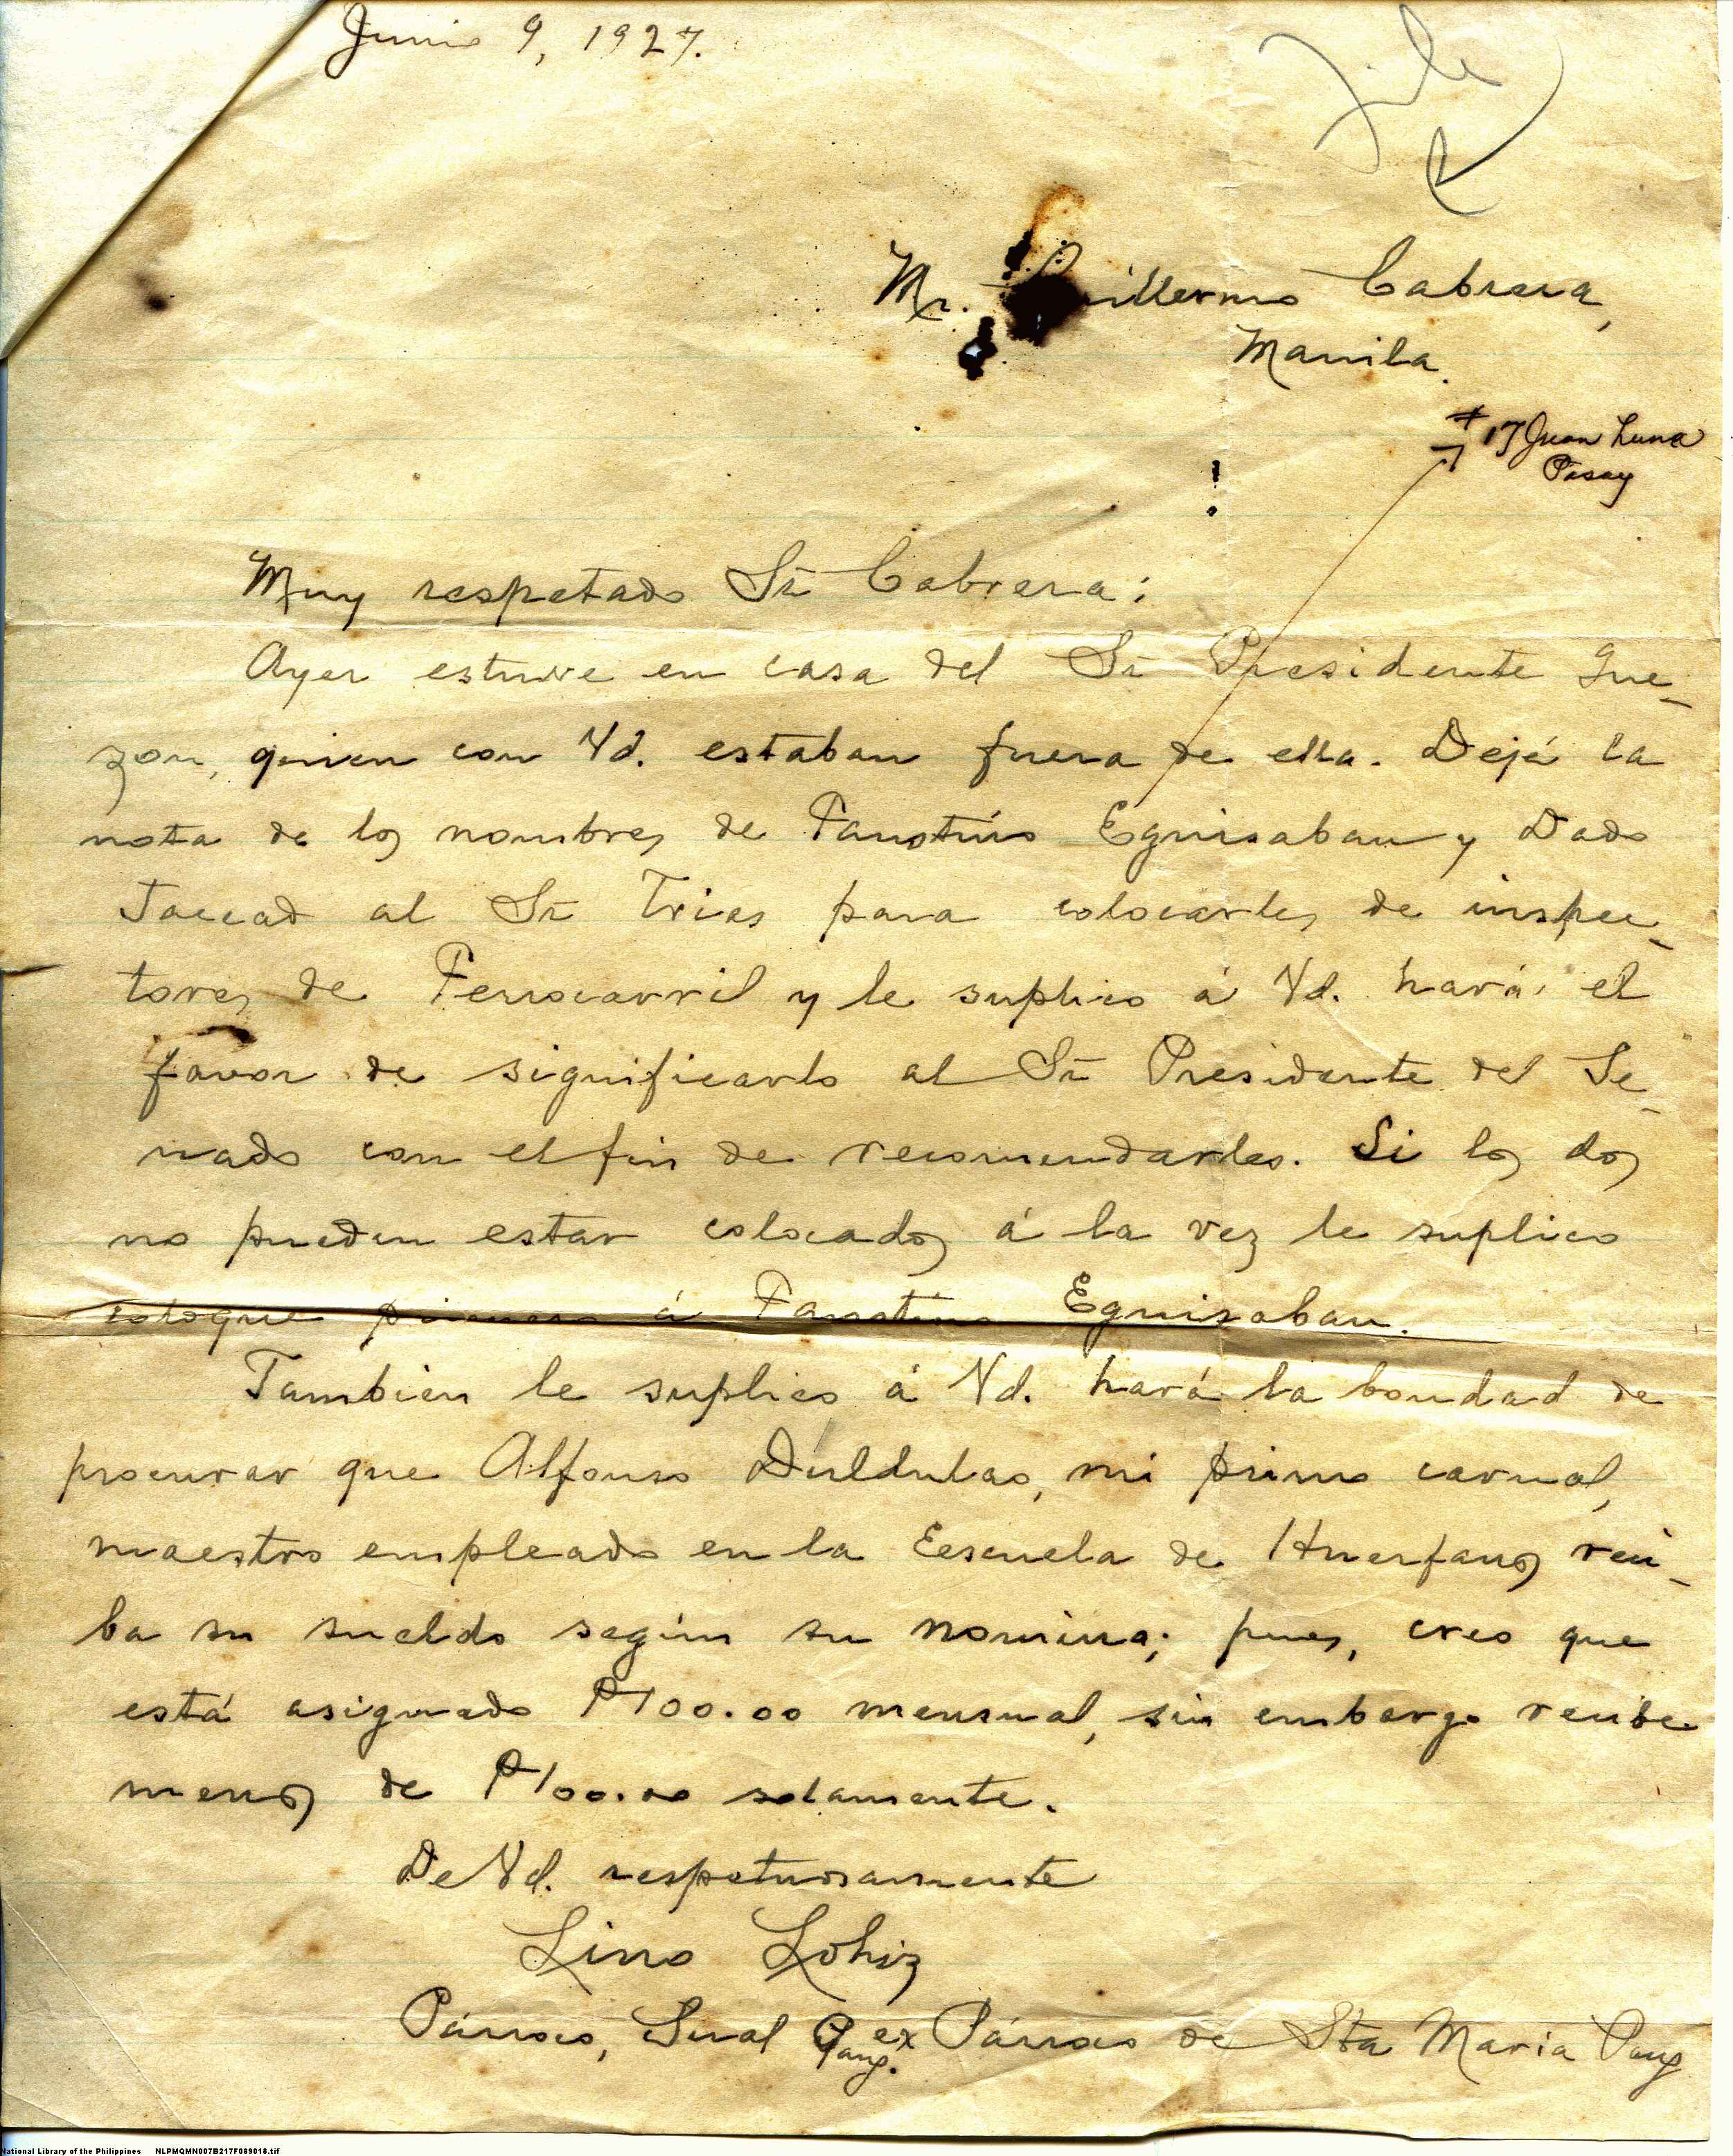 Junio 9, 1927.
File
Mr. Guillermo Cabrera,
Manila.
# 17 Juan Luna
Pasay
Muy respetado Sr. Cabrera:
Ayer estuve en casa del Sr. Presidente Que-
zon, quien con Vd. estaban fuera de ella. Dejé la
nota de los nombres de Faustino Eguisaban y Dado
Taccad al Sr. Trias para colocarles de inspec-
tores de Ferrocarril y le suplico á Vd. hará el
favor de significarlo al Sr. Presidente del Se-
nado con el fin de recomendarles. Si los dos
no pueden estar colocados á la vez le suplico
coloque primero á Faustino Eguisaban.
Tambien le suplico á Vd. hará la bondad de
procurar que Alfonso Duldulao, mi primo carnal,
maestro empleado en la Eescuela de Huerfanos reci-
ba su sueldo según su nomina; pues, creo que
está asignado ₱100.00 mensual, sin embargo recibe
menos de ₱100.00 solamente.
De Vd. respetuosamente
Lino
Párroco, Sual Pang. ex Párroco de Sta Maria Pang
National Library of the Philippines NLPMQMN007B217F089018.tif